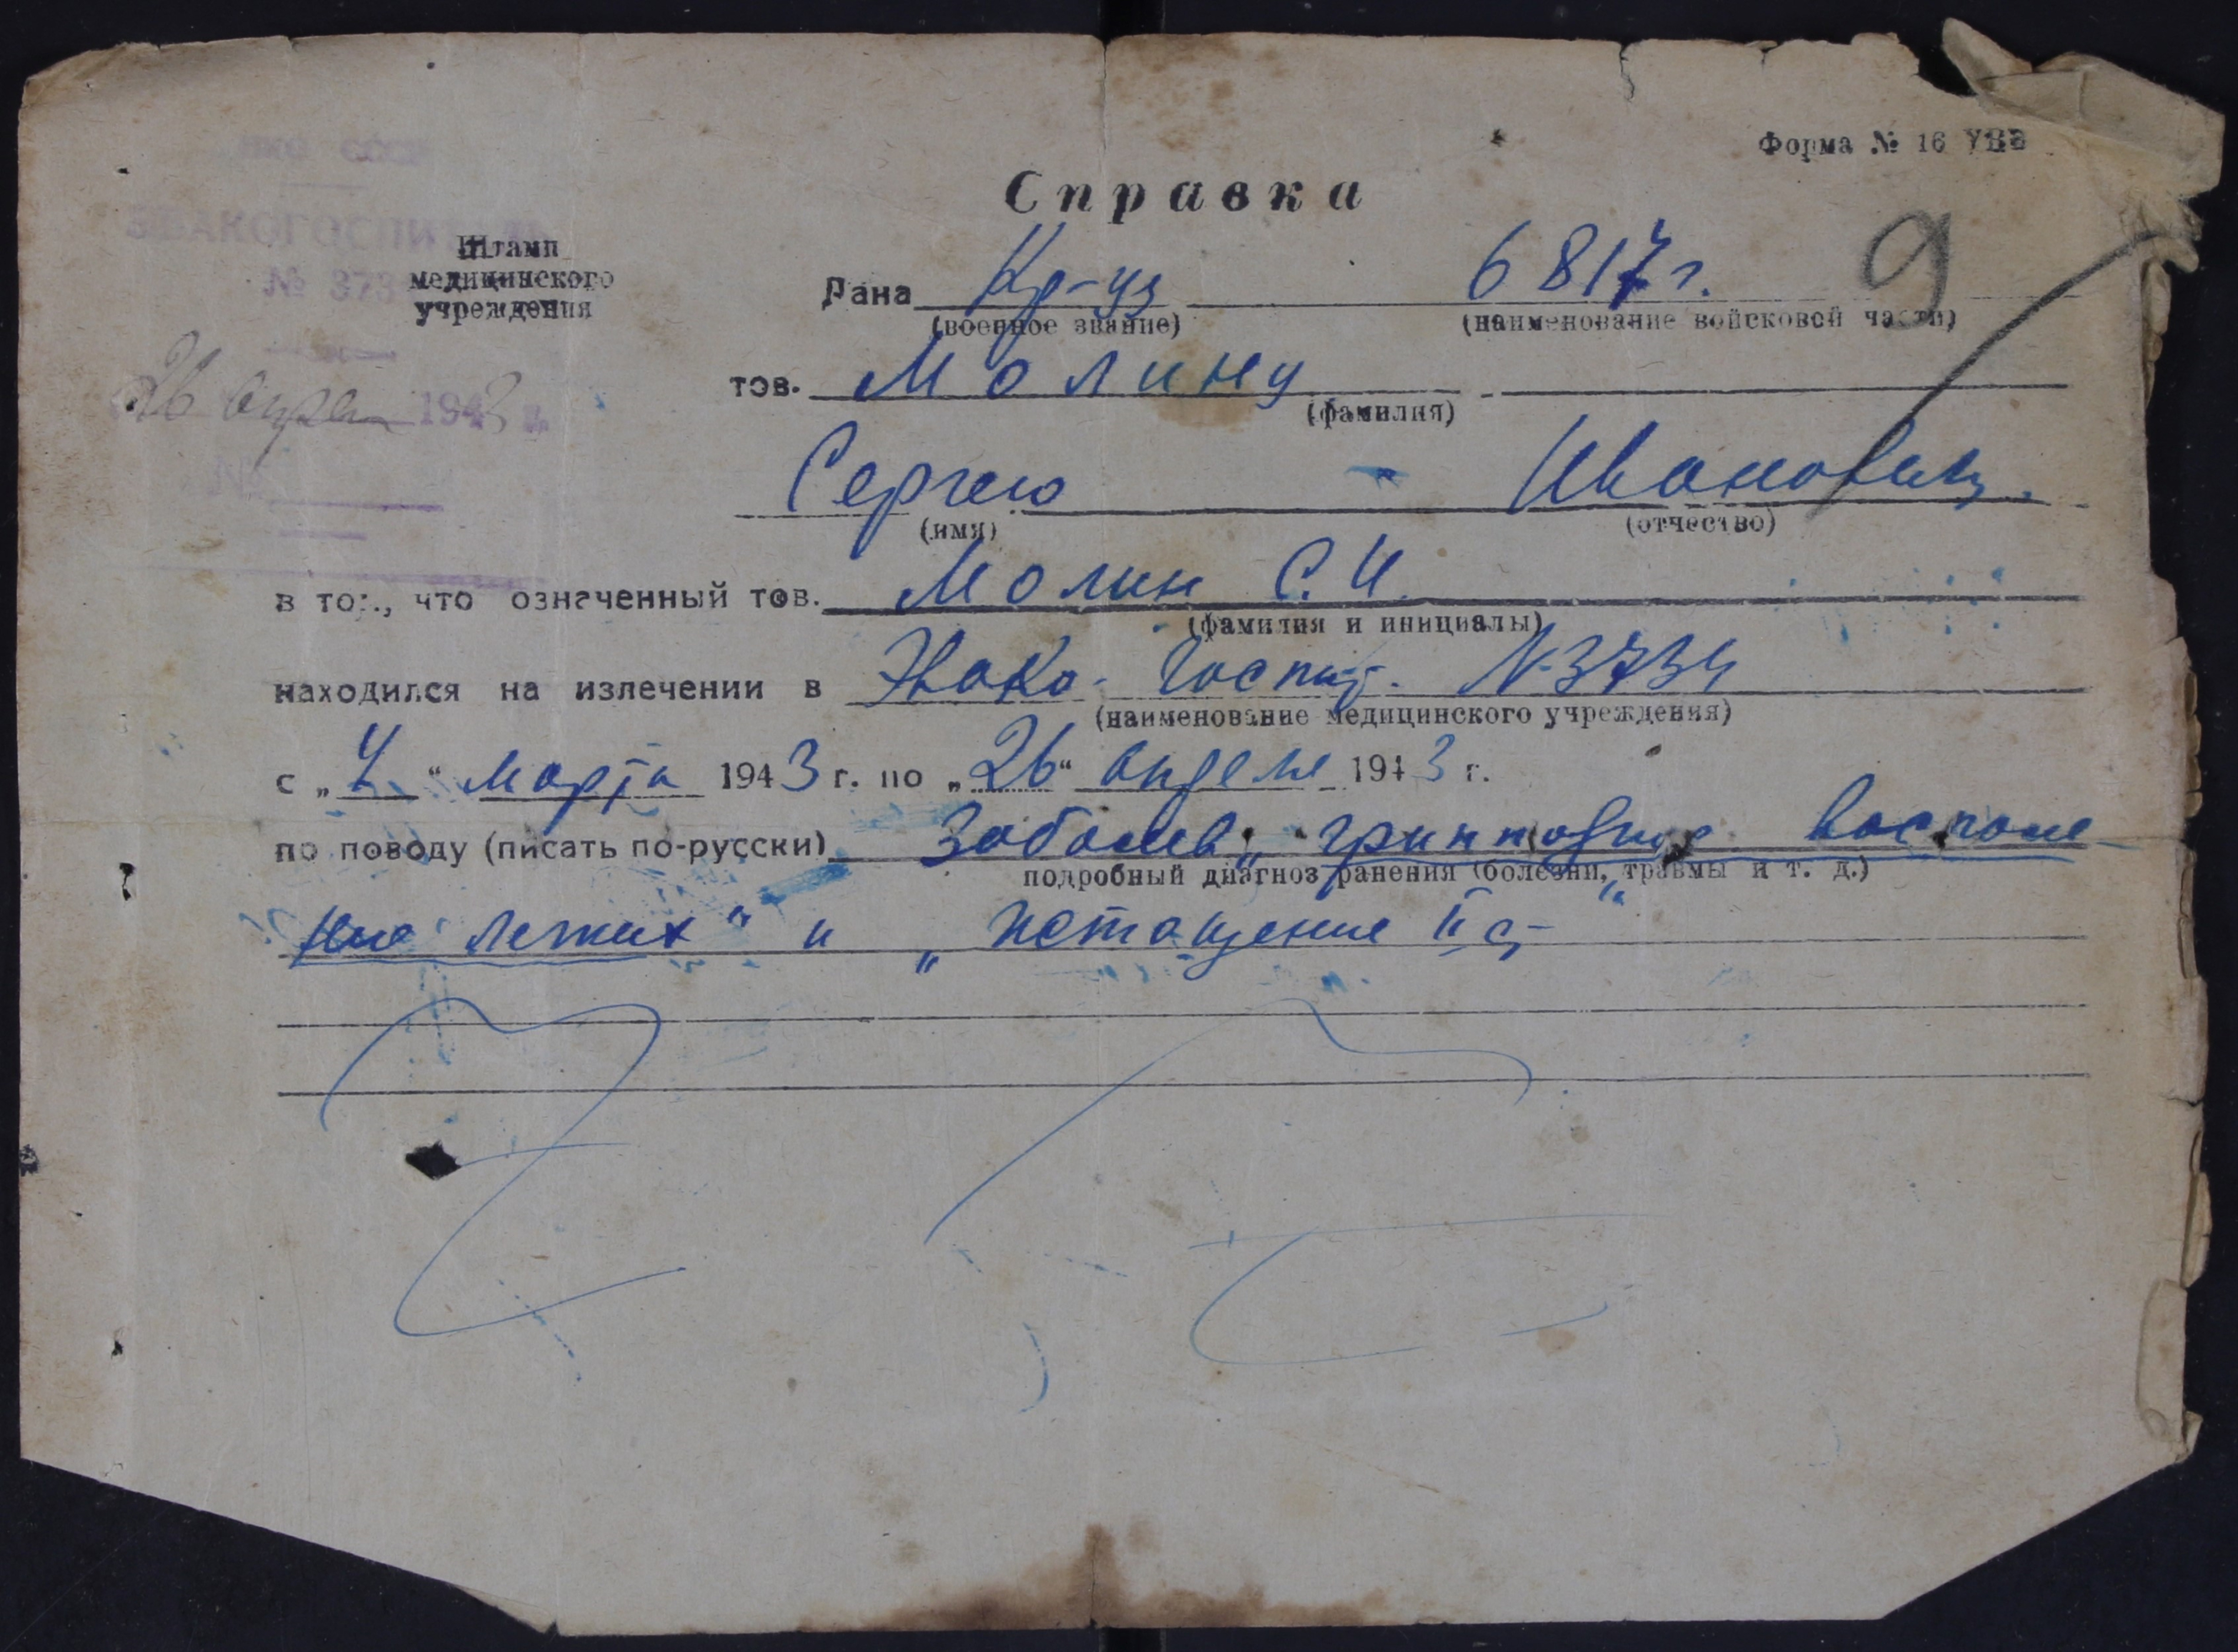 Форма № 16
НКО СССР
Справка
ЭВАКОГОСПИТАЛЬ
Штамп
медицинского
учреждения
№ 373
Дана Кр-цу 6817 г. 9
(военное звание) (наименование войсковой части)
тов. Молину
(фамилия)
26 апреля 1943 г.
Сергею Ивановичу.
(имя) (отчество)
№
в том, что означенный тов. Молин С. И.
(фамилия и инициалы)
находился на излечении в Эвако-Госпит. № 3734
(наименование медицинского учреждения)
с „4“ марта 1943 г. по „26“ апреля 1943 г.
по поводу (писать по-русски) Заболев. „гриппозное воспале-
подробный диагноз ранения (болезни, травмы и т. д.)
ние легких“ и „истощение II ст“